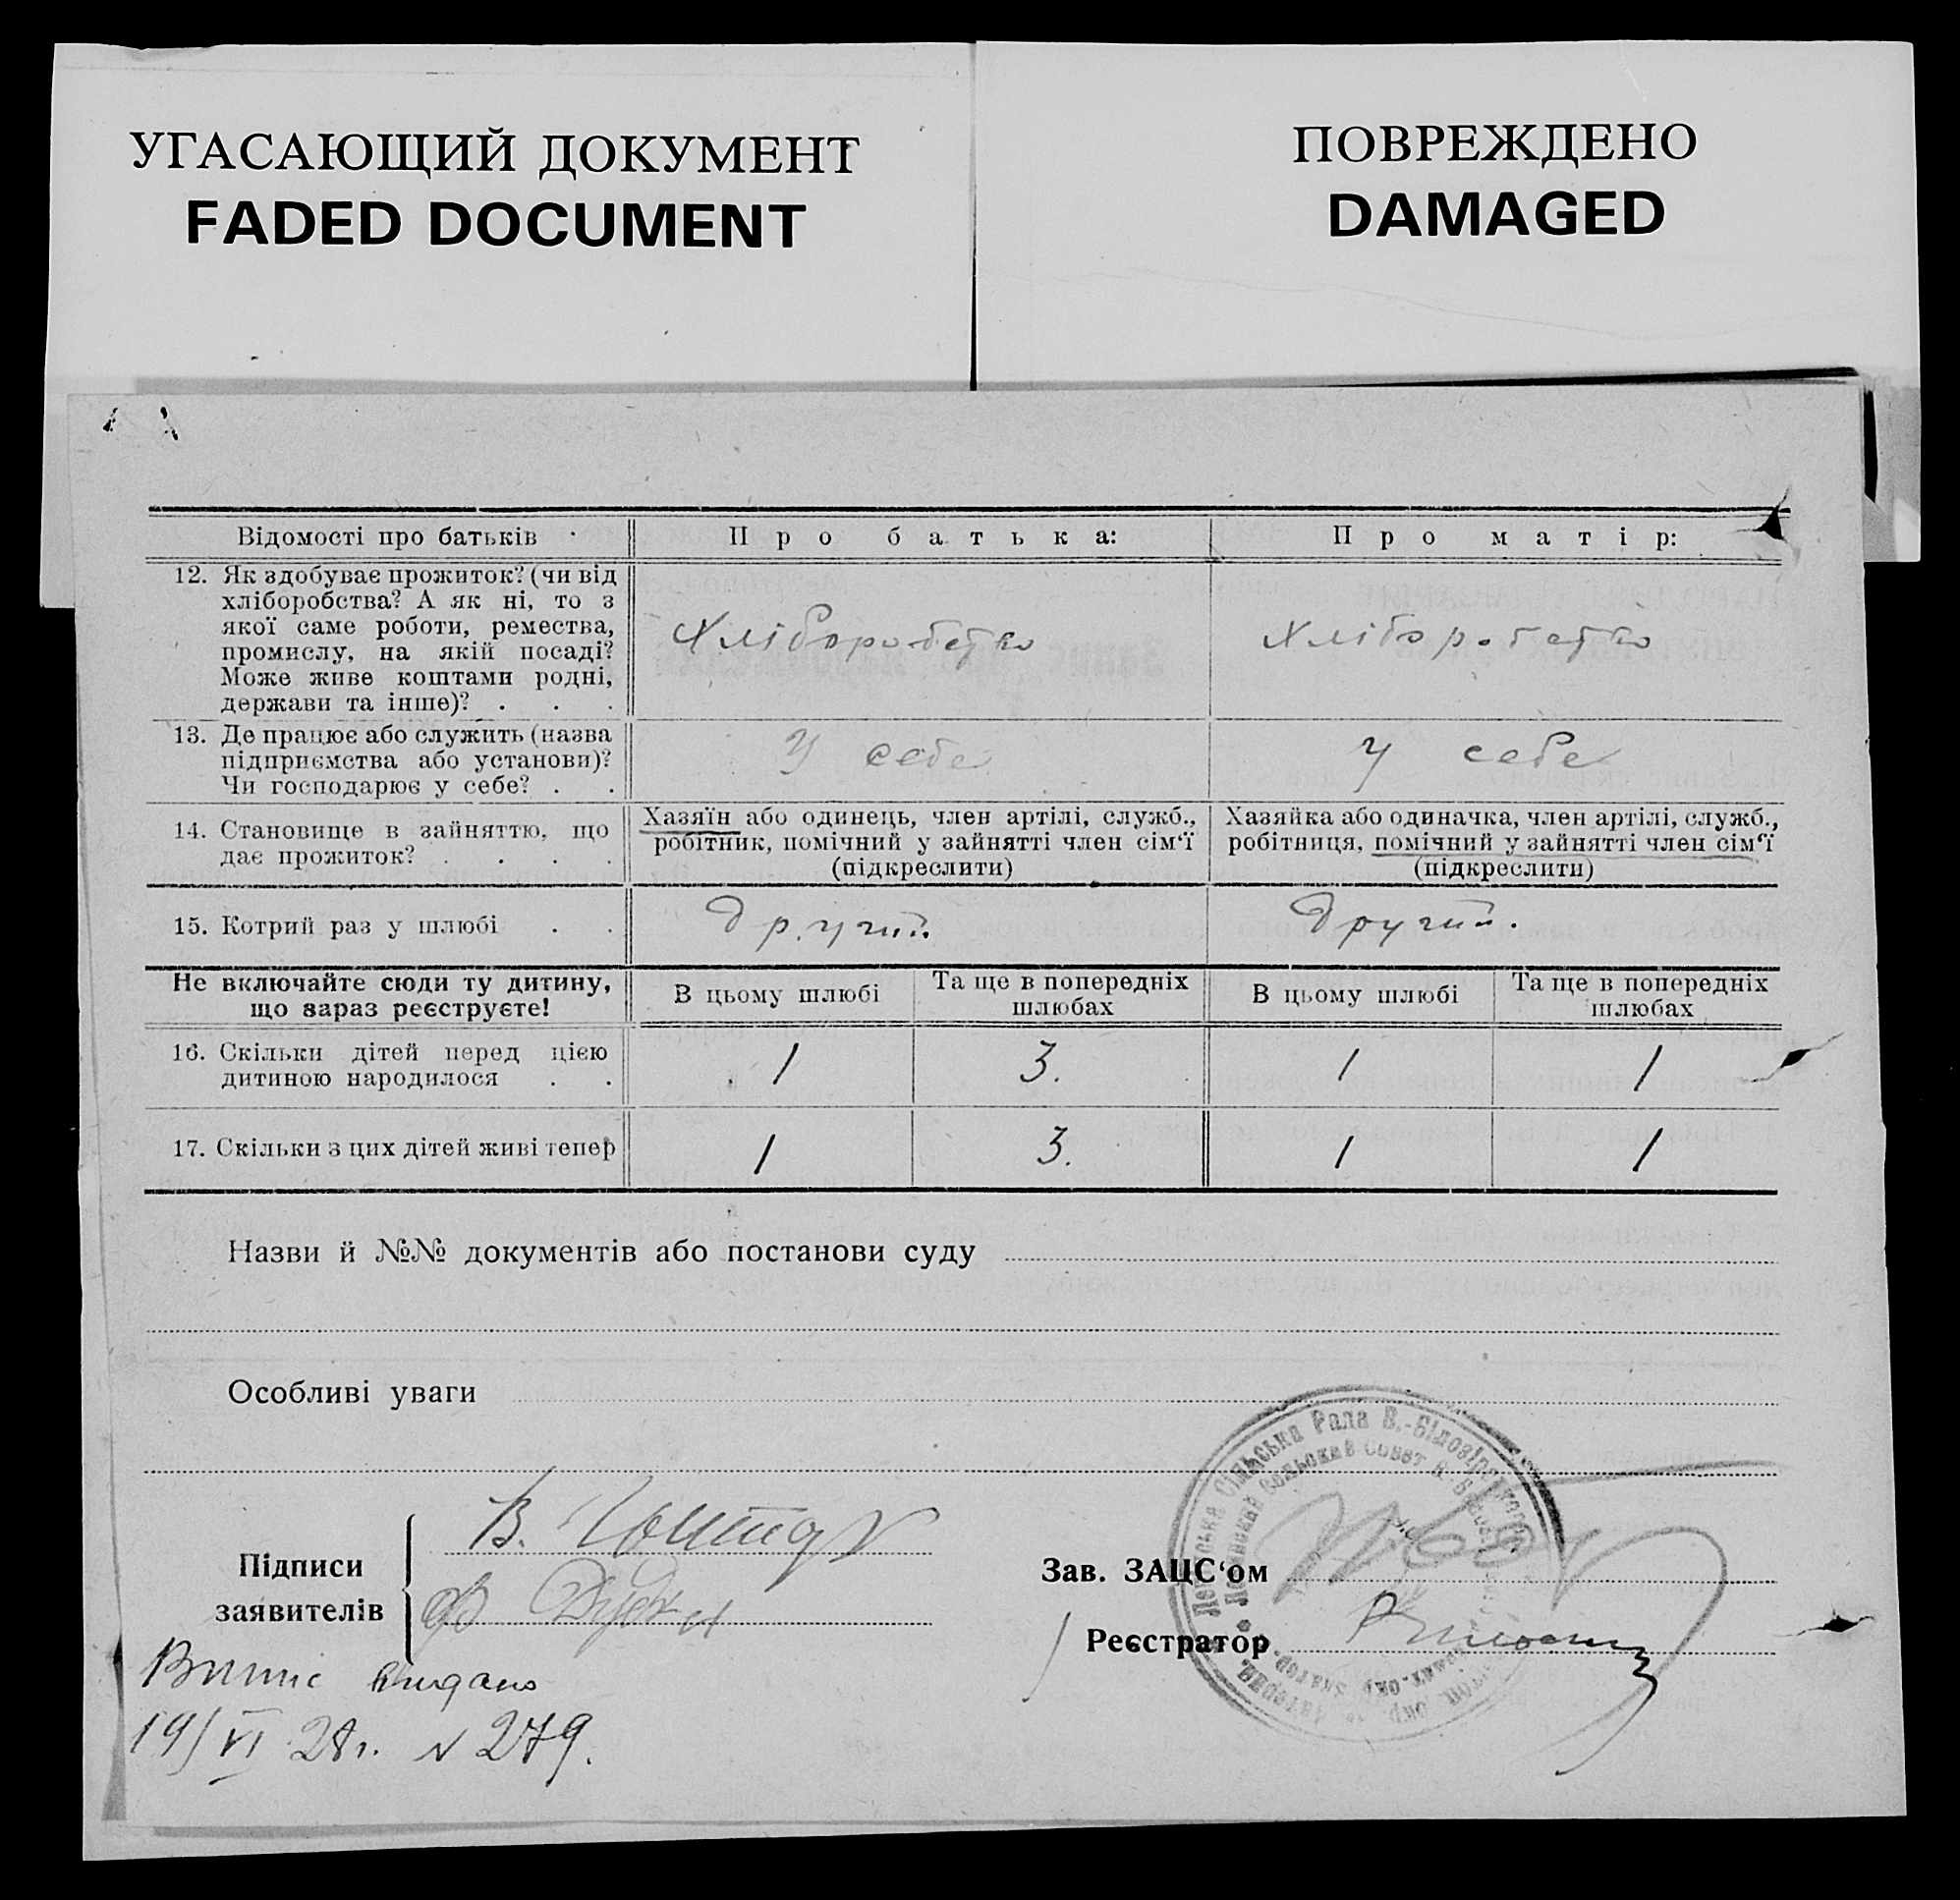 УГАСАЮЩИЙ ДОКУМЕНТ
FADED DOCUMENT
ПОВРЕЖДЕНО
DAMAGED
Відомості про батьків
Про батька:
Про матір:
12. Як здобуває прожиток? (чи від
хліборобства? А як ні, то з
якої саме роботи, ремества,
промислу, на якій посаді?
Може живе коштами родні,
держави та інше)? . . .
Хліборобство
Хліборобство
13. Де працює або служить (назва
підприємства або установи)?
Чи господарює у себе? . .
У себе
У себе
14. Становище в зайняттю, що
дає прожиток? . . . .
Хазяїн або одинець, член артілі, служб.,
робітник, помічний у зайнятті член сім‘ї
(підкреслити)
Хазяйка або одиначка, член артілі, служб.,
робітниця, помічний у зайнятті член сім‘ї
(підкреслити)
15. Котрий раз у шлюбі . .
Другий.
Другий.
Не включайте сюди ту дитину,
що зараз реєструєте!
В цьому шлюбі
Та ще в попередніх
шлюбах
В цьому шлюбі
Та ще в попередніх
шлюбах
16. Скільки дітей перед цією
дитиною народилося . .
1
3.
1
1
17. Скільки з цих дітей живі тепер
1
3.
1
1
Назви й №№ документів або постанови суду
Особливі уваги
Підписи
заявителів
В.
Ф
Зав. ЗАЦС‘ом
Реєстратор
Сільська Рада В.-Білозірського
Сельский Совет
Випис видано
19/VI 28г. N 279.